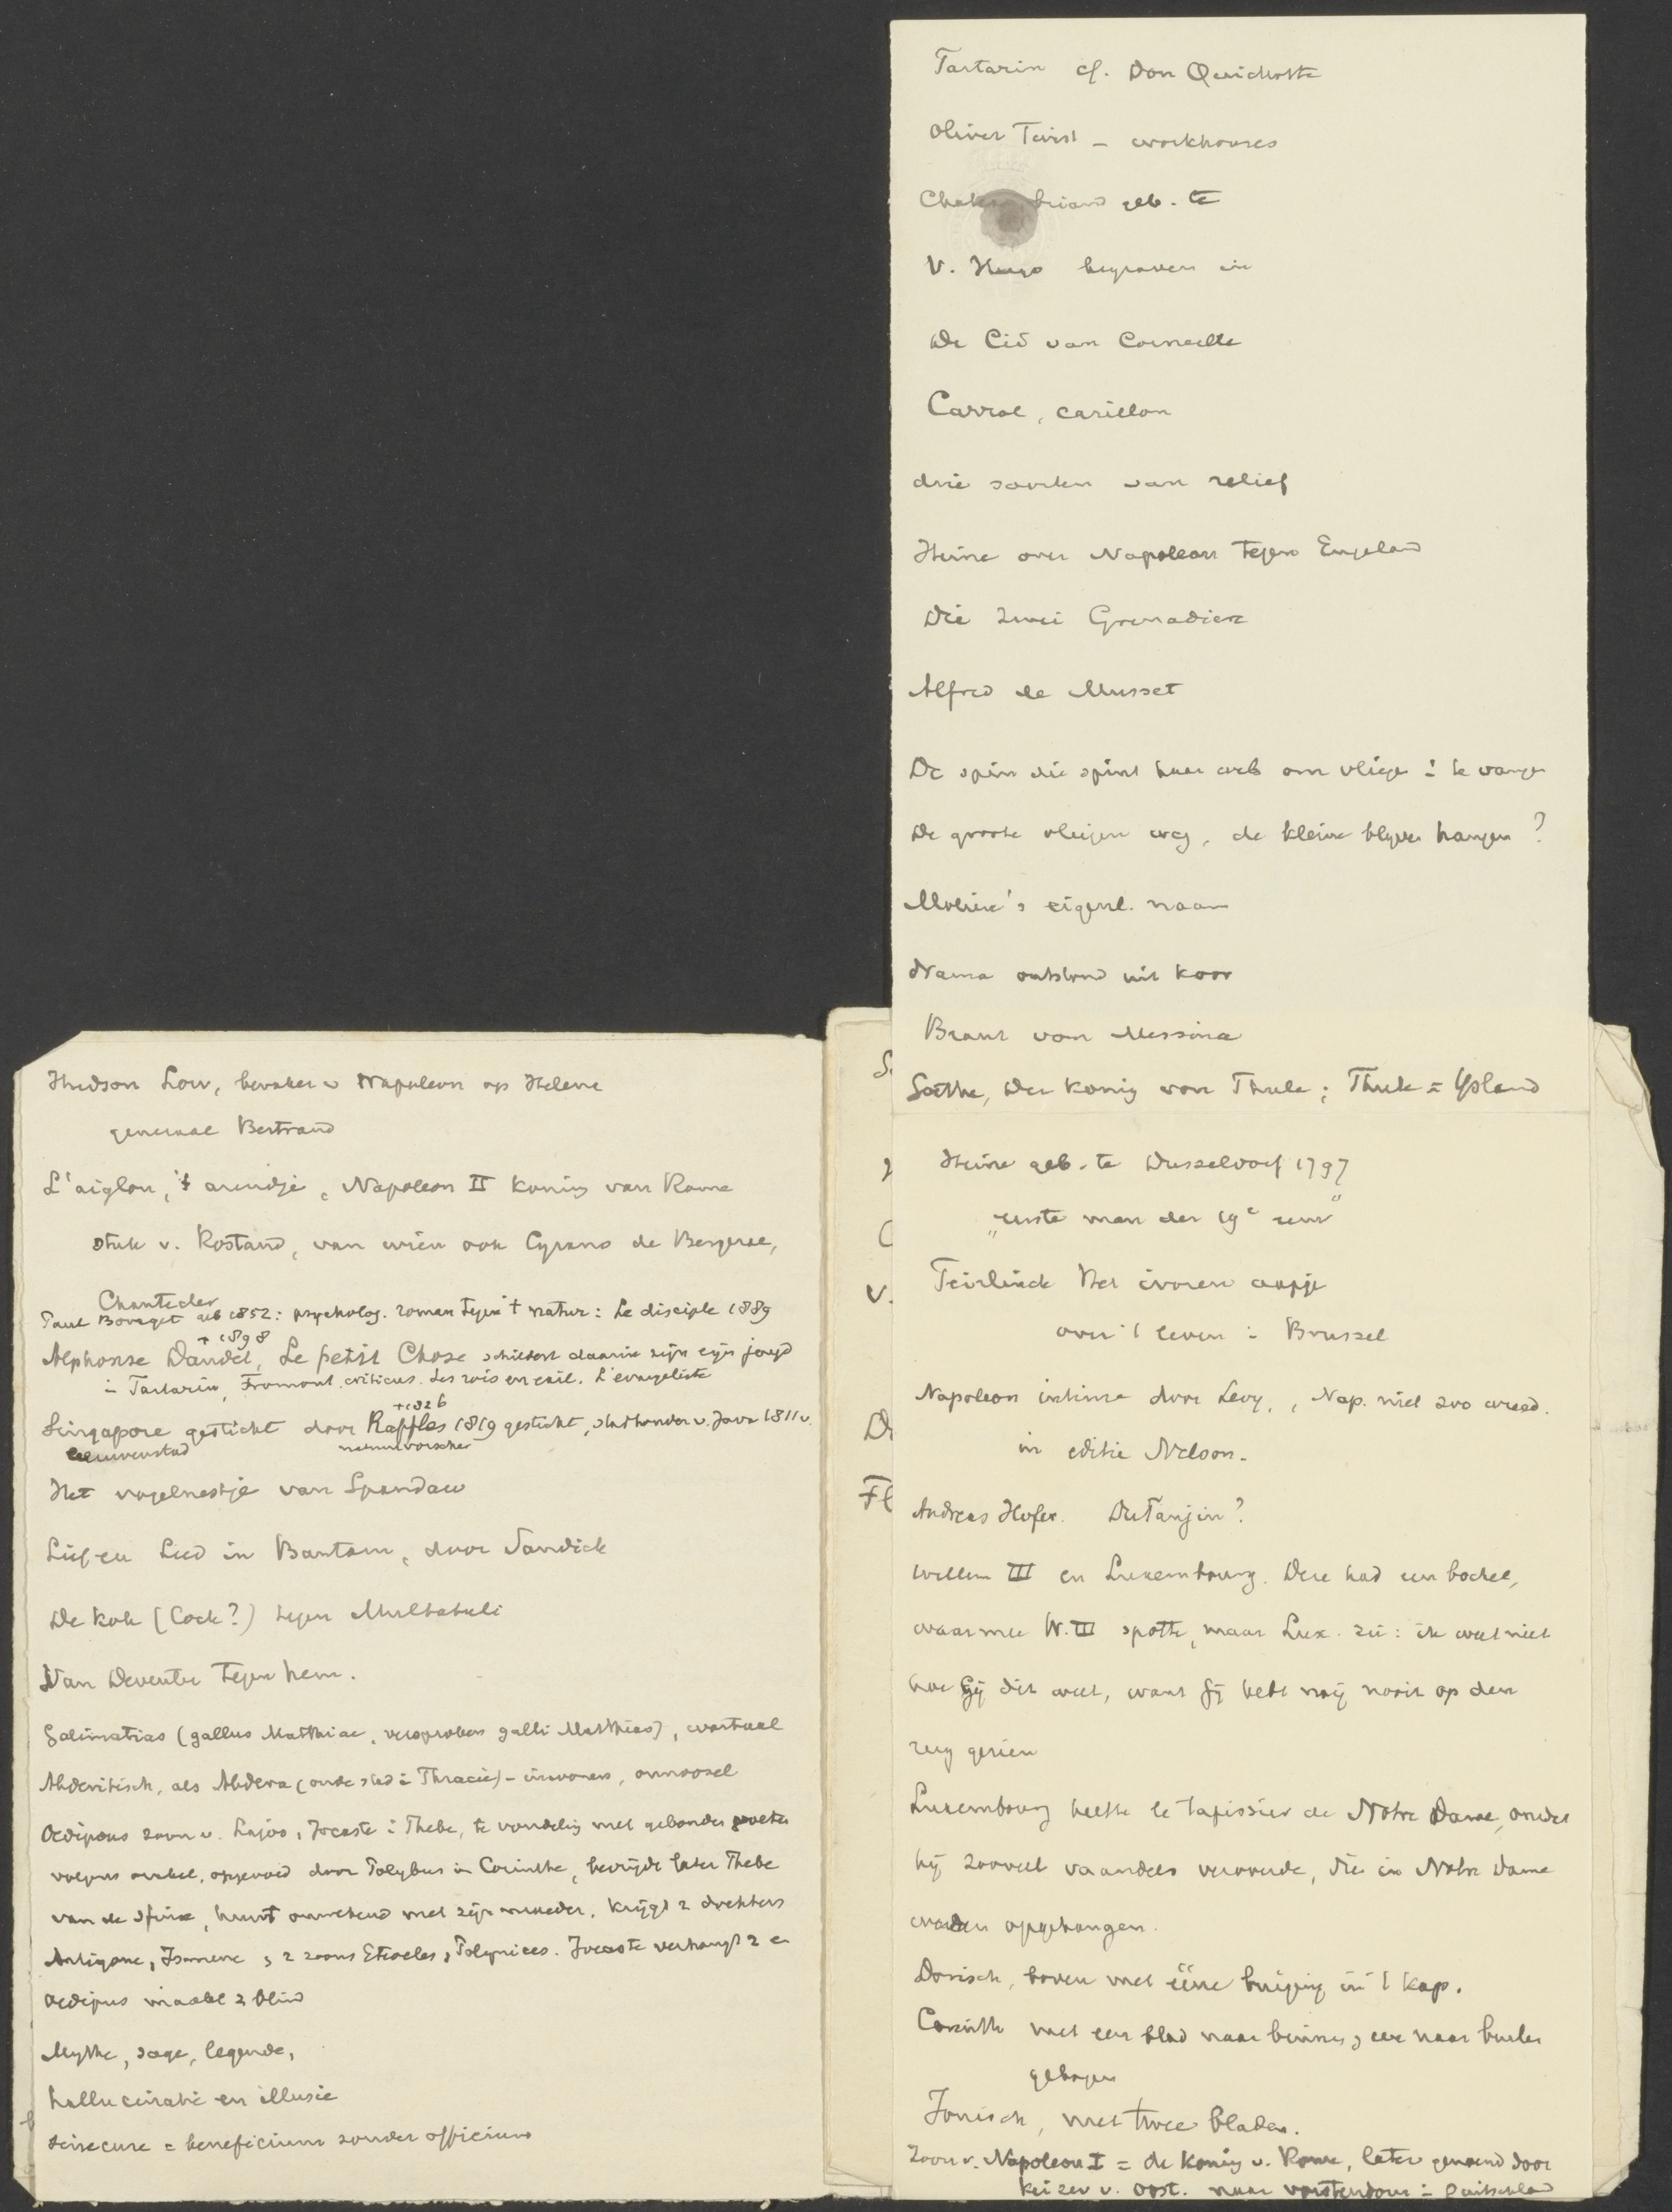 Hudson Low, bewaker v Napoleon op Helene
generaal Bertrand
L'aiglon, 't arendje, Napoleon II koning van Rome
stuk v. Rostand, van wien ook Cyrano de Bergerac,
Chantecler
Paul Bourget geb 1852: psycholog. roman tegen 't natur: Le disciple 1889
+ 1898
Alphonse Daudet, Le petit Chose schildert daarin zijn eigen jeugd
Tartarin, Fromont, Les rois en exil. L'évangeliste
+1826
Singapore gesticht door Raffles 1819 gesticht, stadhouder v. Java 1811 v.
leeuwenstad natuurvorscher
Het vogelnestje van Spandaw
Lief en Leed in Bantam, door Sandick
De Kok (Cock?) tegen Multatuli
Van Deventer tegen hem.
Galimatias (gallus Matthiae, versproken galli Matthias), wartaal
Abderitisch, als Abdera (oude stad i Thracië) - inwoners, onnoozel
Oedipous zoon v. Lajos, Jocaste i Thebe, te vondeling met gebonden voeten
volgens orakel, opgevoed door Polybus in Corinthe, bevrijdt later Thebe
van de sfinx, huwt onwetend met zijn moeder. Krijgt 2 dochters
Antigone, Ismene, 2 zoons Eteocles, Polynices. Jocaste verhangt z en
Oedipus maakt z blind
Mythe, sage, legende,
hallucinatie en illusie
sinecure = beneficium zonder officium
Tartarin cf. Don Quichotte
Oliver Twist - workhouses
Chateaubriand geb. te
V. Hugo begraven in
De Cid van Corneille
Carrol, carillon
drie soorten van relief
Heine over Napoleon tegen Engeland
Die zwei Grenadiere
Alfred de Musset
De spin die spint haar web om vliegen te vangen
De groote vliegen weg, de kleine blijven hangen?
Molière's eigenl. naam
Drama ontstond uit koor
Braut von Messina
Goethe, Der König von Thule; Thule = IJsland
Heine geb. te Dusseldorf 1797
„eerste man der 19e eeuw"
Teirlinck Het ivoren aapje
over 't leven i Brussel
Napoleon intime door Levy, Nap. niet zoo wreed.
in editie Nelson.
Andreas Hofer. Dutanjin?
Willem III en Luxembourg. Deze had een bochel,
waarmee W. III spotte, maar Lux. zei: ik weet niet
hoe Gij dit weet, want Gij hebt mij nooit op den
rug gezien
Luxembourg heette le tapissier de Notre Dame, omdat
hij zooveel vaandels veroverde, die in Notre Dame
werden opgehangen.
Dorisch, boven met ééne buiging in 't kap.
Corinth met een blad naar binnen, een naar buiten
gebogen
Jonisch, met twee bladen.
Zoon v. Napoleon I = de Koning v. Rome, later genoemd door
keizer v. Oost. naar vorstendom i Duitschland